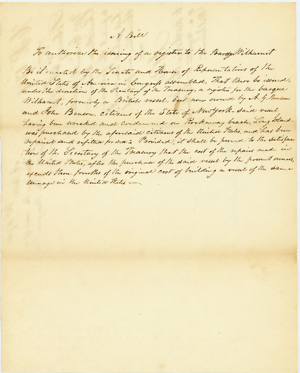 A Bill
To authorize the issuing of a register to the Barque Wilhamet
Be it enacted by the Senate and House of Representatives of the
United States of America in Congress assembled, That there be issued,
under the direction of the Secretary of the Treasury, a register for the barque
Wilhamet, formerly a British vessel, but now owned by
and John Benson, citizens of the State of New York, said vessel
having been wrecked and condemned on Rockaway beach, Long Island
was purchased by the aforesaid citizens of the United States, and has been
repaired and refitted for sea: Provided, it shall be proved to the satisfac-
tion of the Secretary of the Treasury that the cost of the repairs made in
the United States, after the purchase of the said vessel by the present owners,
exceeds three fourths of the original cost of building a vessel of the same
tonnage in the United States.